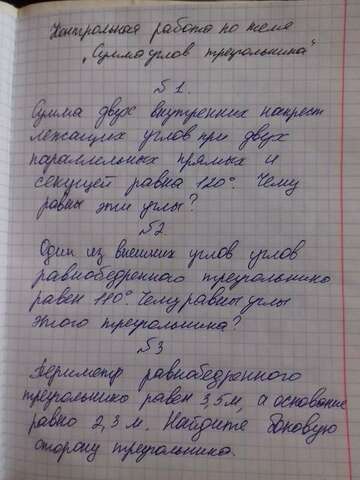 Контрольная работа по теме
„Сумма углов треугольника"
№ 1.
Сумма двух внутренних накрест
лежащих углов при двух
параллельных прямых и
секущей равна 120°. Чему
равны эти углы?
№2
Один из внешних углов углов
равнобедренного треугольнико
равен 110°. Чему равны углы
этого треугольника?
№3
Периметр равнобедренного
треугольнико равен 3,5м, а основание
равно 2,3 м. Найдите боковую
сторону треугольника.